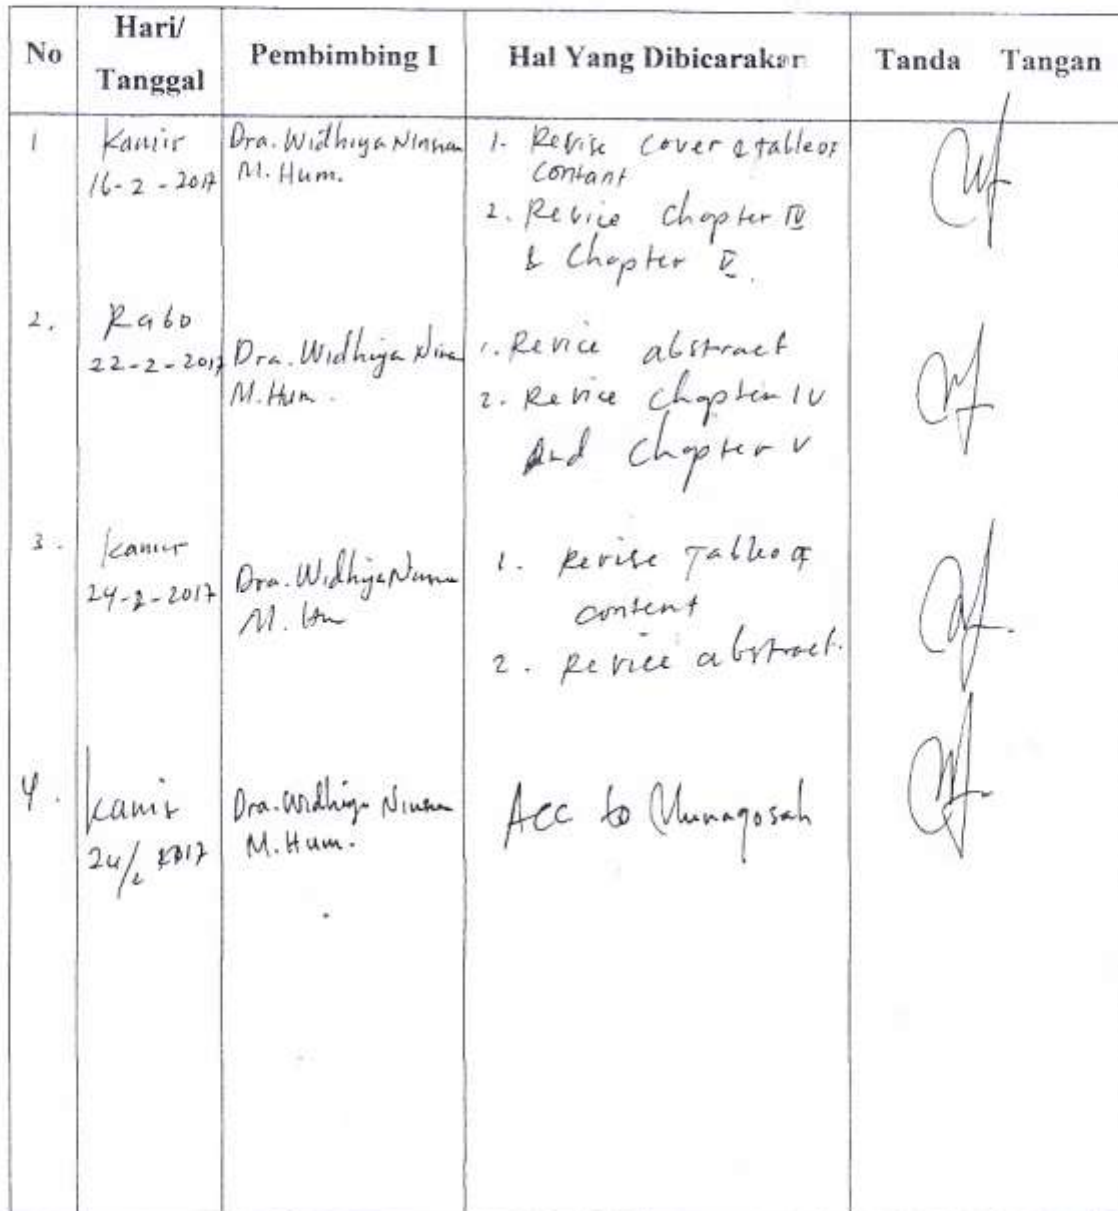 No
Hari/
Tanggal
Pembimbing I
Hal Yang Dibicarakan
Tanda Tangan
1
Kamis
16-2-2017
Dra. Widhiya Ninsiana
M. Hum.
1. Revise cover & table of
contant
2. Revice Chapter IV
& Chapter V.
2.
Rabo
22-2-2017
Dra. Widhiya
M. Hum.
1. Revice abstract
2. Revice Chapter IV
And Chapter V
3.
Kamis
24-2-2017
Dra. Widhiya
M.
1. Revise Table of
content
2. Revice abstract.
4.
Kamis
24/2 2017
Dra. Widhiya
M. Hum.
Acc to Munaqosah